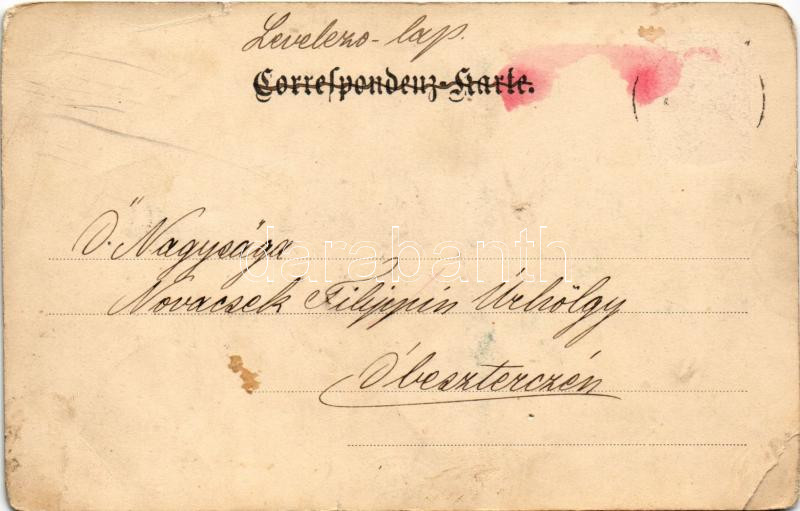 Levelezo-lap.
Correspondenz-Karte.
Ő Nagysága
darabanth
Novacsek Filippin Úrhölgy
Óbeszterczén